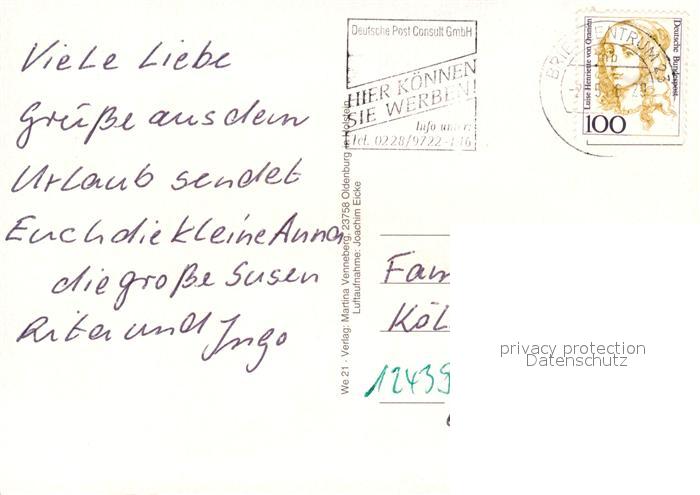 Viele Liebe
Grüße aus dem
Urlaub sendet
Euch die kleine Anna
die große Susen
Rita und Ingo
We.21 - Verlag: Martina Venneberg, 23758 Oldenburg in Holstein
Luftaufnahme: Joachim Eicke
Deutsche Post Consult GmbH
HIER KÖNNEN
SIE WERBEN!
Info unter:
Tel. 0228/9722-136
BRIEFZENTRUM 23
Luise Henriette von Oranien
Deutsche Bundespost
100
Fam
Köl
12439
privacy protection
Datenschutz